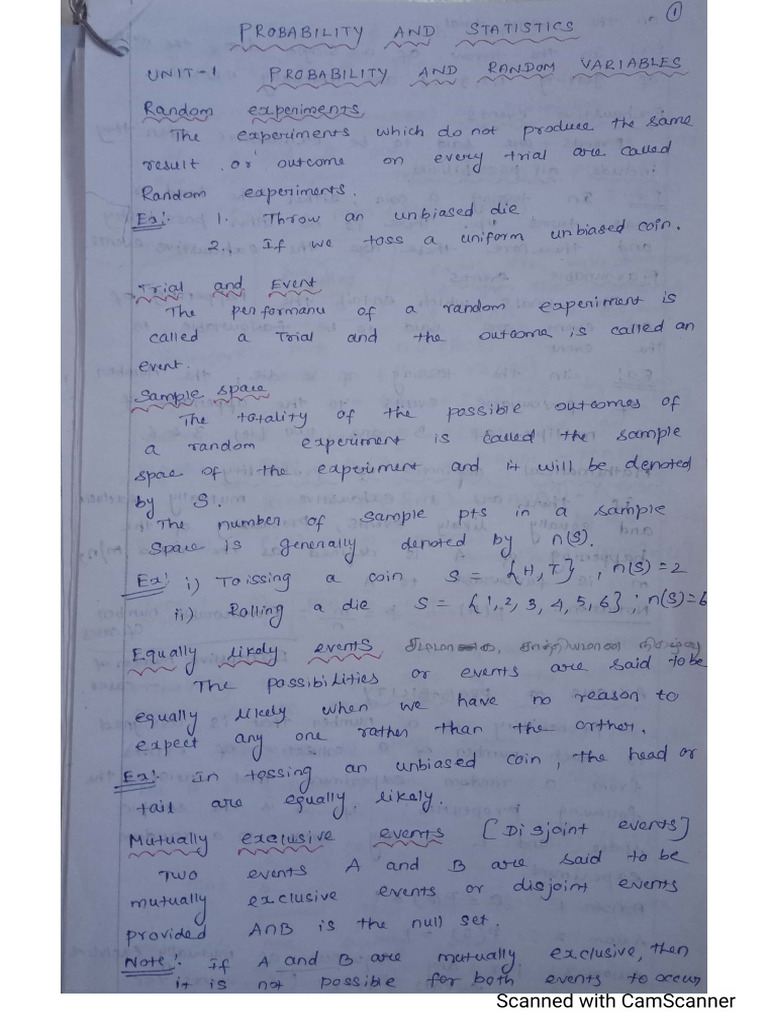 1
PROBABILITY AND STATISTICS
UNIT-1 PROBABILITY AND RANDOM VARIABLES
Random experiments
The experiments which do not produce the same
result or outcome on every trial are called
Random experiments.
Ex: 1. Throw an unbiased die
2. If we toss a uniform unbiased coin.
Trial and Event
The performanu of a random experiment is
called a Trial and the outcome is called an
event.
Sample space
The totality of the possible outcomes of
a random experiment is called the sample
space of the experiment and it will be denoted
by S.
The number of sample pts in a sample
space is generally denoted by n(S).
Ex: i) Toissing a coin S = {H, T} ; n(S) = 2
ii) Rolling a die S = {1, 2, 3, 4, 5, 6} ; n(S) = 6
Equally likely events
The possibilities or events are said to be
equally likely when we have no reason to
expect any one rather than the orther.
Ex: In tossing an unbiased coin, the head or
tail are equally likely.
Mutually exclusive events [Disjoint events]
Two events A and B are said to be
mutually exclusive events or disjoint events
provided A∩B is the null set.
Note: If A and B are mutually exclusive, then
it is not possible for both events to occur
Scanned with CamScanner